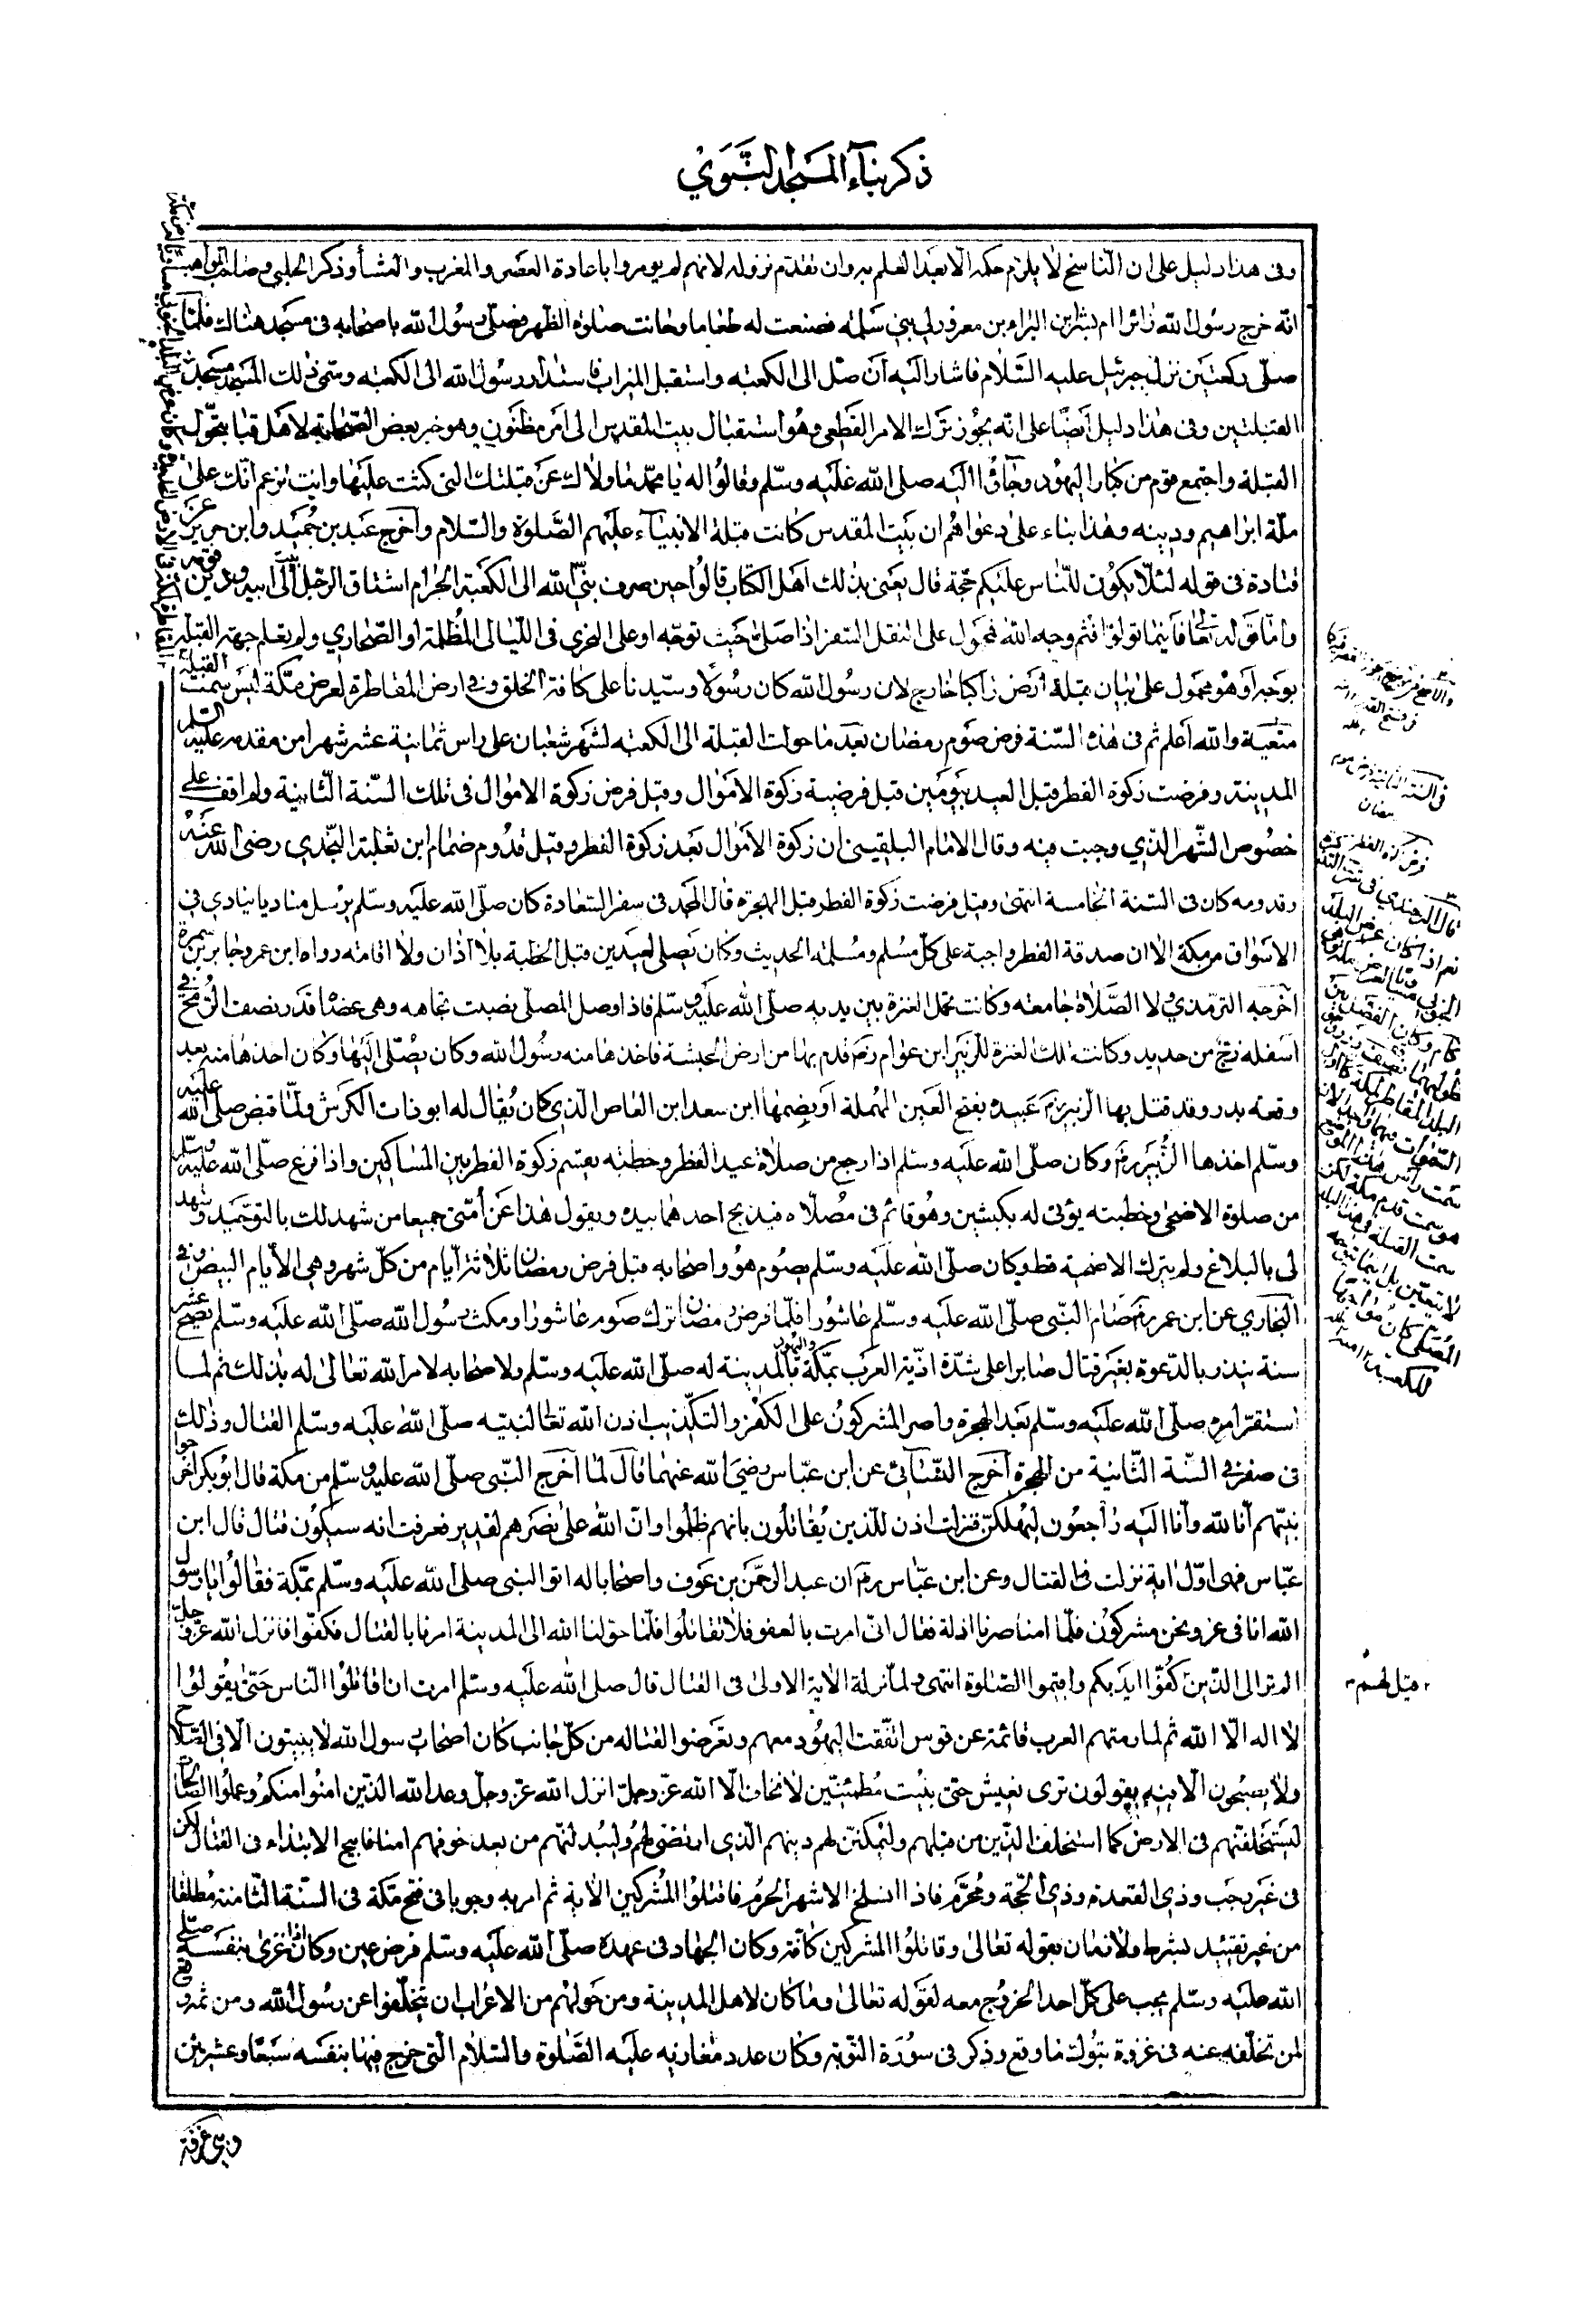 ذكر بناء المسجد النبوي
وفى هذا دليل على ان الناسخ لا يلزم حكمه الا بعد العلم به وان تقدم نزوله لانهم لم يومروا باعادة العصر والمغرب والعشاء وذكر الحلبي وصاحب المواهب
انه خرج رسول الله زائرا ام بشر بن البراء بن معرور في بني سلمة فصنعت له طعاما وحانت صلوة الظهر فصلى رسول الله باصحابه فى مسجد هنالك فلما
صلى ركعتين نزل جبرئيل عليه السلام فاشار اليه ان صل الى الكعبة واستقبل الميزاب فاستدار رسول الله الى الكعبة وسمى ذلك المسجد مسجد
القبلتين وفى هذا دليل ايضا على انه يجوز ترك الامر القطعى وهو استقبال بيت المقدس الى امر مظنون وهو خبر بعض الصحابة لاهل قبا بتحول
القبلة واجتمع قوم من كبار اليهود وجاؤا اليه صلى الله عليه وسلم وقالوا له يا محمد ما ولاك عن قبلتك التى كنت عليها وانت تزعم انك على
ملة ابراهيم ودينه وهذا بناء على دعواهم ان بيت المقدس كانت قبلة الانبياء عليهم الصلوة والسلام واخرج عبد بن حميد وابن جرير عن
قتادة فى قوله لئلا يكون للناس عليكم حجة قال يعنى بذلك اهل الكتاب قالوا حين صرف نبى الله الى الكعبة الحرام اشتاق الرجل الى بيت ابيه ودين قومه
واما قوله تعالى فاينما تولوا فثم وجه الله فمحمول على التنفل السفر اذا صلى حيث توجه او على التحرى فى الليالى المظلمة او الصحارى ولم يعلم جهة القبلة
بوجه او هو محمول على بيان قبلة ارض زاكبا خارج لان رسول الله كان رسولا وسيدنا على كافة الخلق وفى ارض المقاطرة لعرض مكة ليس سمت القبلة
متعينة والله اعلم ثم فى هذه السنة فرض صوم رمضان بعد ما حولت القبلة الى الكعبة لشهر شعبان على راس ثمانية عشر شهرا من مقدمه عليه السلم
المدينة وفرضت زكوة الفطر قبل العيد بيومين قبل فرضية زكوة الاموال وقيل فرض زكوة الاموال فى تلك السنة الثانية ولم اقف على
خصوص الشهر الذي وجبت فيه وقال الامام البلقينى ان زكوة الاموال بعد زكوة الفطر وقبل قدوم ضمام ابن ثعلبة النجدي رضى الله عنه
وقدومه كان فى السنة الخامسة انتهى وقيل فرضت زكوة الفطر قبل الهجرة قال المجد فى سفر السعادة كان صلى الله عليه وسلم يرسل مناديا ينادي في
الاسواق من مكة الا ان صدقة الفطر واجبة على كل مسلم ومسلمة الحديث وكان يصلى العيدين قبل الخطبة بلا اذان ولا اقامة رواه ابن عمر وجابر بن سمرة
اخرجه الترمذي ولا الصلاة جامعة وكانت تحمل العنزة بين يديه صلى الله عليه وسلم فاذا وصل المصلى نصبت تجاهه وهى عصا قدر نصف الرمح في
اسفله زج من حديد وكانت تلك العنزة للزبير ابن عوام رضى قدم بها من ارض الحبشة فاخذها منه رسول الله وكان يصلى اليها وكان اخذها منه بعد
وقعة بدر وقد قتل بها الزبير رضى عبيدة بفتح العين المهملة او بضمها ابن سعد ابن العاص الذي كان يقال له ابو ذات الكرش ولما قبض صلى الله عليه
وسلم اخذها الزبير رضى وكان صلى الله عليه وسلم اذا رجع من صلاة عيد الفطر وخطبته يقسم زكوة الفطر بين المساكين واذا فرغ صلى الله عليه وسلم
من صلوة الاضحى وخطبته يؤتى له بكبشين وهو قائم فى مصلاه فيذبح احدهما بيده ويقول هذا عن أمتى جميعا من شهد لك بالتوحيد وشهد
لى بالبلاغ ولم يترك الاضحية قط وكان صلى الله عليه وسلم يصوم هو واصحابه قبل فرض رمضان ثلاثة ايام من كل شهر وهى الايام البيض وفي
البخاري عن ابن عمر رضى صام النبى صلى الله عليه وسلم عاشورا فلما فرض رمضان ترك صوم عاشورا ومكث رسول الله صلى الله عليه وسلم بضع عشر
سنة ينذر بالدعوة بغير قتال صابرا على شدة اذية العرب بمكة واليهود بالمدينة له صلى الله عليه وسلم ولاصحابه لامر الله تعالى له بذلك ثم لما
استقر امره صلى الله عليه وسلم بعد الهجرة واصر المشركون على الكفر والتكذيب اذن الله تعالى لنبيه صلى الله عليه وسلم القتال وذلك
فى صفر فى السنة الثانية من الهجرة اخرج النسائى عن ابن عباس رضى الله عنهما قال لما اخرج النبى صلى الله عليه وسلم من مكة قال ابو بكر اخرجوا
نبيهم انا لله وانا اليه راجعون ليهلكن فنزلت اذن للذين يقاتلون بانهم ظلموا وان الله على نصرهم لقدير فعرفت انه سيكون قتال قال ابن
عباس فهى اول اية نزلت فى القتال وعن ابن عباس رضى ان عبد الرحمن بن عوف واصحابا له اتوا النبى صلى الله عليه وسلم بمكة فقالوا يا رسول
الله انا فى عز ونحن مشركون فلما امنا صرنا اذلة فقال انى امرت بالعفو فلا تقاتلوا فلما حولنا الله الى المدينة امرنا بالقتال فكفوا فانزل الله عز وجل
الم تر الى الذين قيل لهم كفوا ايديكم واقيموا الصلوة انتهى ولما نزلة الاية الاولى فى القتال قال صلى الله عليه وسلم امرت ان اقاتلوا الناس حتى يقولوا
لا اله الا الله ثم لما رمتهم العرب قائمة عن قوس اتفقت اليهود معهم وتعرضوا القتاله من كل جانب كان اصحاب رسول الله لا يبيتون الا فى السلاح
ولا يصبحون الا فيه يقولون ترى نعيش حتى نبيت مطمئنين لا نخاف الا الله عز وجل انزل الله عز وجل وعد الله الذين امنوا منكم وعملوا الصالحات
ليستخلفنهم فى الارض كما استخلف الذين من قبلهم وليمكنن لهم دينهم الذي ارتضى لهم وليبدلنهم من بعد خوفهم امنا فابيح الابتداء فى القتال لكن
فى غير رجب وذي القعدة وذي الحجة ومحرم فاذا انسلخ الاشهر الحرم فاقتلوا المشركين الاية ثم امر به وجوبا فى فتح مكة فى السنة الثامنة مطلقا
من غير تقييد بشرط ولا زمان بقوله تعالى وقاتلوا المشركين كافة وكان الجهاد فى عهده صلى الله عليه وسلم فرض عين وكان اذا غزى بنفسه صلى
الله عليه وسلم يجب على كل احد الخروج معه لقوله تعالى وما كان لاهل المدينة ومن حولهم من الاعراب ان يتخلفوا عن رسول الله ومن ثم وقع
لمن تخلف عنه فى غزوة تبوك ما وقع وذكر فى سورة التوبة وكان عدد مغازيه عليه الصلوة والسلام التى خرج فيها بنفسه سبعا وعشرين
فى السنة الثانية فرض صوم رمضان
فرض زكاة الفطر
قيل لهم